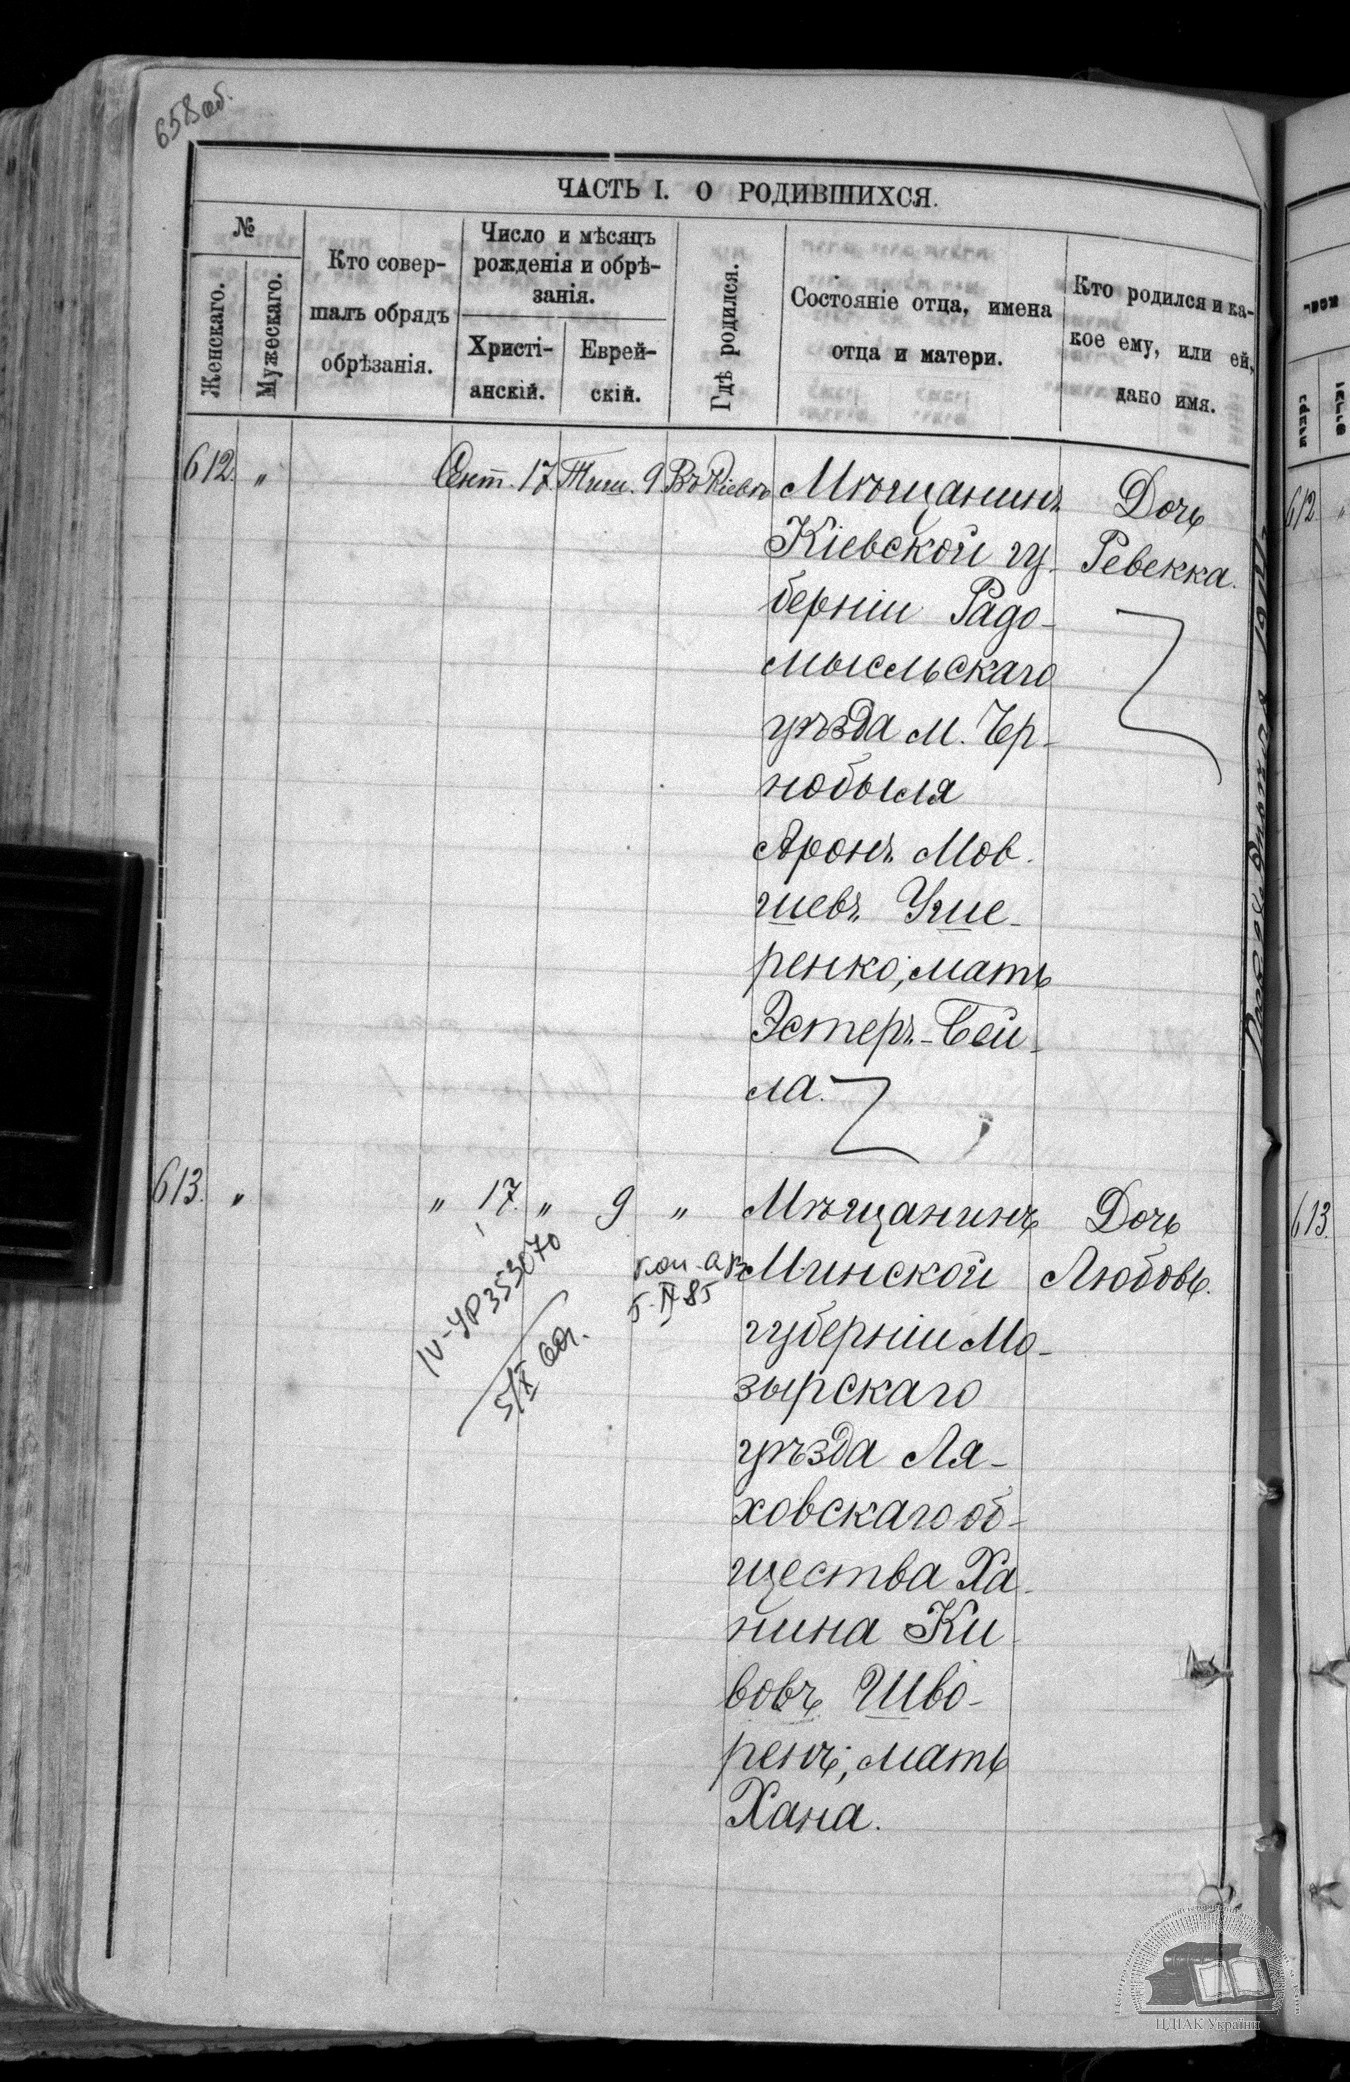 658 об.
ЧАСТЬ I. О РОДИВШИХСЯ.
№
Женскаго.
Мужескаго.
Кто совер-
шалъ обрядъ
обрѣзанія.
Число и мѣсяцъ
рожденія и обрѣ-
занія.
Христі-
анскій.
Еврей-
скій.
Гдѣ родился.
Состояніе отца, имена
отца и матери.
Кто родился и ка-
кое ему, или ей,
дано имя.
612. „ Сент. 17. Тиш. 9. Въ Кіевѣ
Мѣщанинъ
Кіевской гу-
берніи Радо-
мысльскаго
уѣзда м. Чер-
нобыля
Аронъ Мов-
шевъ Уше-
ренко, мать
Эстеръ-Бей-
ла.
Дочь
Ревекка.
613. „ „ 17. „ 9 „
Мѣщанинъ
Минской
губерніи Мо-
зырскаго
уѣзда Ля-
ховскаго об-
щества Ха-
нина Ки-
вовъ Шво-
ренъ, мать
Хана.
Дочь
Любовь.
IV-УР 353070
5/X 60г.
612. „
613
ЦДІАК України